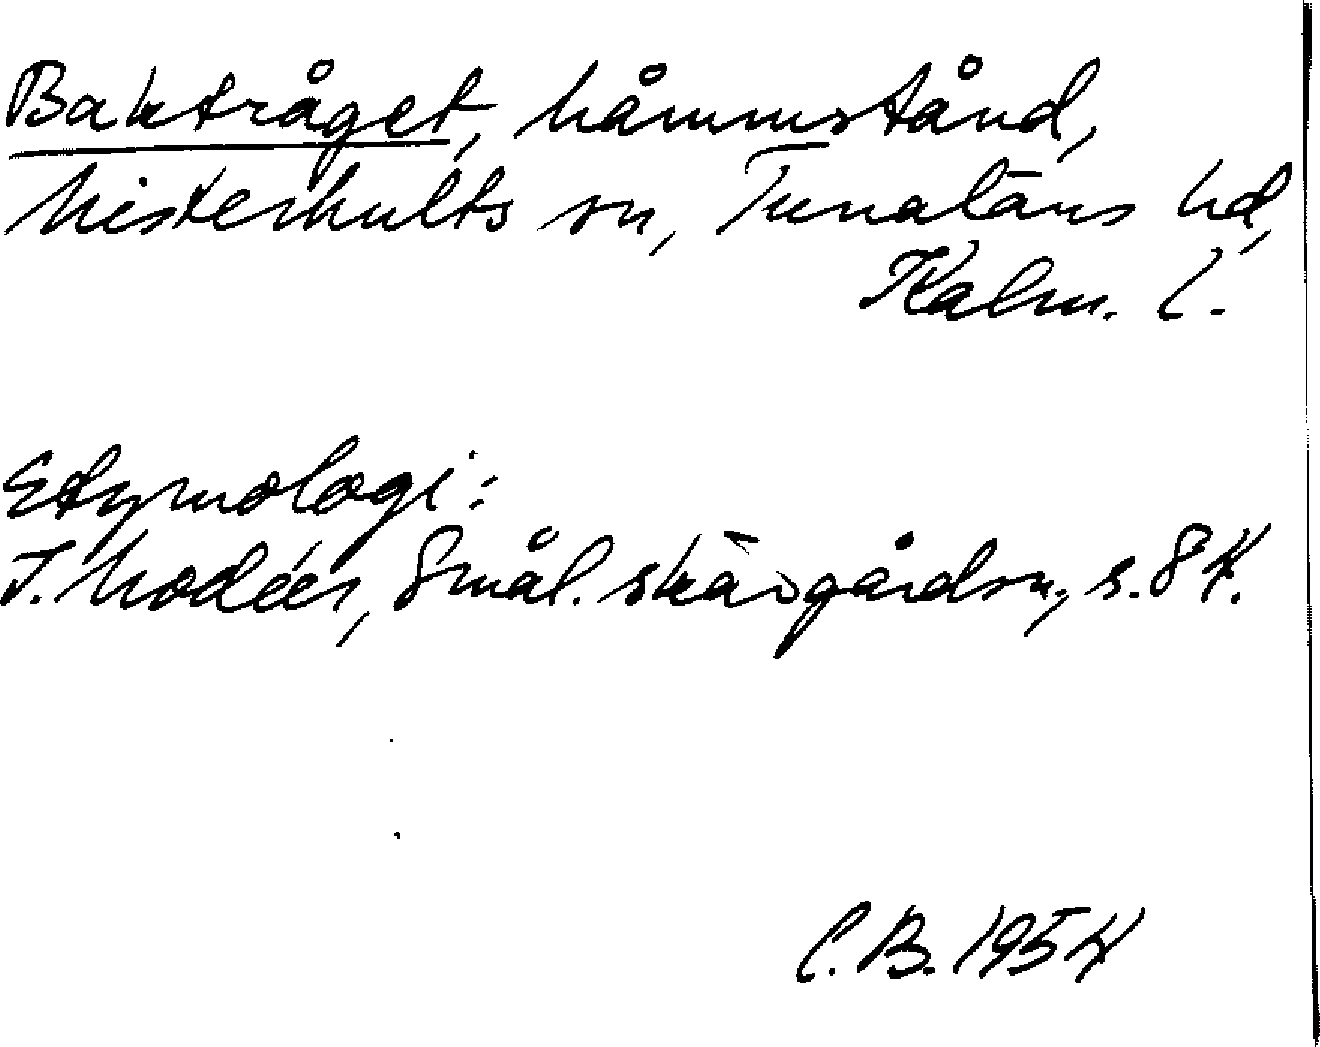 Baktråget, håmmstånd,
Misterhults sn, Tunaläns hd,
Kalm. l.
Etymologi:
I. Modéer, Smål. skärgårdsn., s. 84.
C.B. 1954